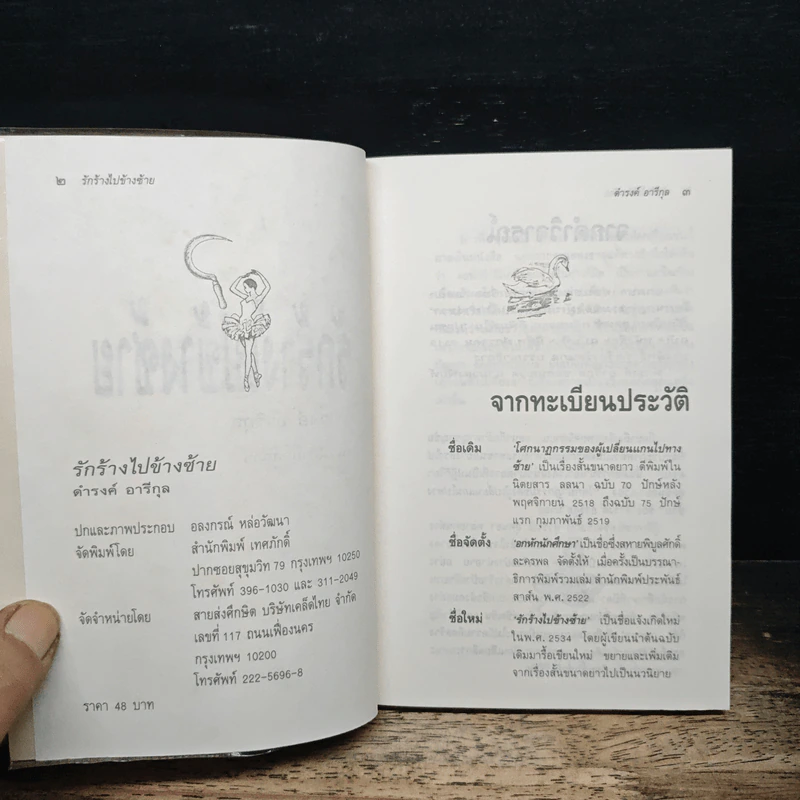 ๒ รักร้างไปข้างซ้าย
รักร้างไปข้างซ้าย
ดำรงค์ อารีกุล
ปกและภาพประกอบ อลงกรณ์ หล่อวัฒนา
จัดพิมพ์โดย สำนักพิมพ์ เทศภักดิ์
ปากซอยสุขุมวิท 79 กรุงเทพฯ 10250
โทรศัพท์ 396-1030 และ 311-2049
จัดจำหน่ายโดย สายส่งศึกษิต บริษัทเคล็ดไทย จำกัด
เลขที่ 117 ถนนเฟื่องนคร
กรุงเทพฯ 10200
โทรศัพท์ 222-5696-8
ราคา 48 บาท
ดำรงค์ อารีกุล ๓
จากทะเบียนประวัติ
ชื่อเดิม 'โศกนาฏกรรมของผู้เปลี่ยนแกนไปทาง
ซ้าย' เป็นเรื่องสั้นขนาดยาว ตีพิมพ์ใน
นิตยสาร ลลนา ฉบับ 70 ปักษ์หลัง
พฤศจิกายน 2518 ถึงฉบับ 75 ปักษ์
แรก กุมภาพันธ์ 2519
ชื่อจัดตั้ง 'อกหักนักศึกษา' เป็นชื่อซึ่งสหายพิบูลศักดิ์
ละครพล จัดตั้งให้ เมื่อครั้งเป็นบรรณา-
ธิการพิมพ์รวมเล่ม สำนักพิมพ์ประพันธ์
สาส์น พ.ศ. 2522
ชื่อใหม่ 'รักร้างไปข้างซ้าย' เป็นชื่อแจ้งเกิดใหม่
ในพ.ศ. 2534 โดยผู้เขียนนำต้นฉบับ
เดิมมารื้อเขียนใหม่ ขยายและเพิ่มเติม
จากเรื่องสั้นขนาดยาวไปเป็นนวนิยาย